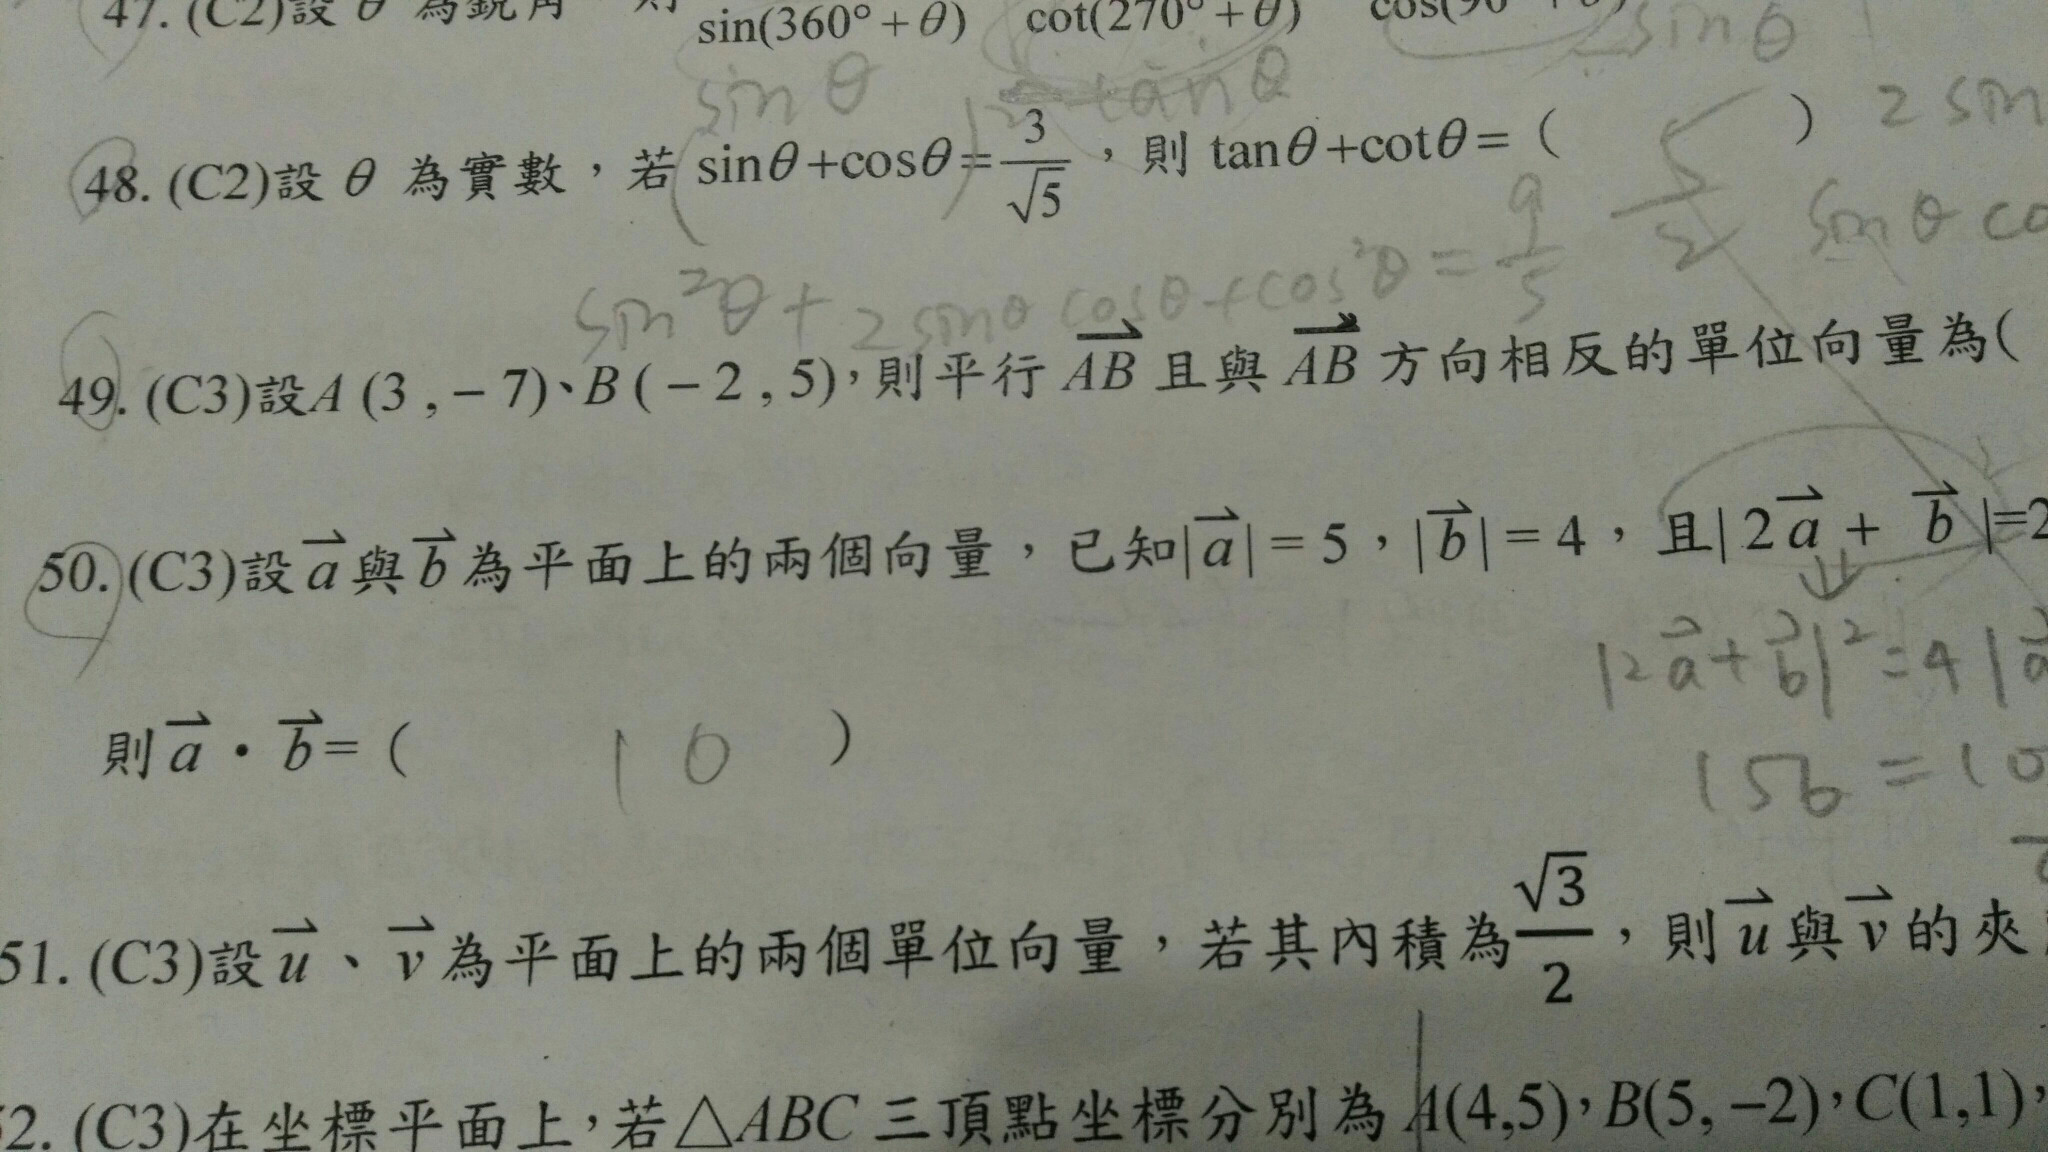 47. (C2)設 θ 為銳角 則 sin(360°+θ) cot(270°+θ) cos(90°
sinθ tanθ -sinθ
48. (C2)設 θ 為實數，若 sinθ+cosθ=3/√5，則 tanθ+cotθ=( 5/2 ) 2 sin
sin²θ + 2sinθ cosθ + cos²θ = 9/5 sinθ co
49. (C3)設A (3 , − 7)、B ( − 2 , 5)，則平行 AB 且與 AB 方向相反的單位向量為(
50. (C3)設 a 與 b 為平面上的兩個向量，已知| a | = 5，| b | = 4，且| 2 a + b |=2
|2a+b|²=4|a
則 a · b = ( 10 )
156 = 10
51. (C3)設 u 、 v 為平面上的兩個單位向量，若其內積為 √3/2，則 u 與 v 的夾
52. (C3)在坐標平面上，若△ABC 三頂點坐標分別為 A(4,5)，B(5, −2)，C(1,1)，